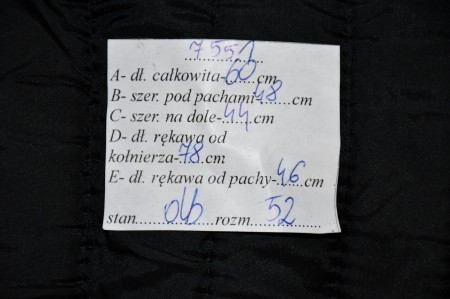 7552
A- dł. całkowita-60cm
B- szer. pod pachami 48 cm
C- szer. na dole-44 cm
D- dł. rękawa od
kołnierza-78 cm
E- dł. rękawa od pachy-46 cm
stan db rozm. 52